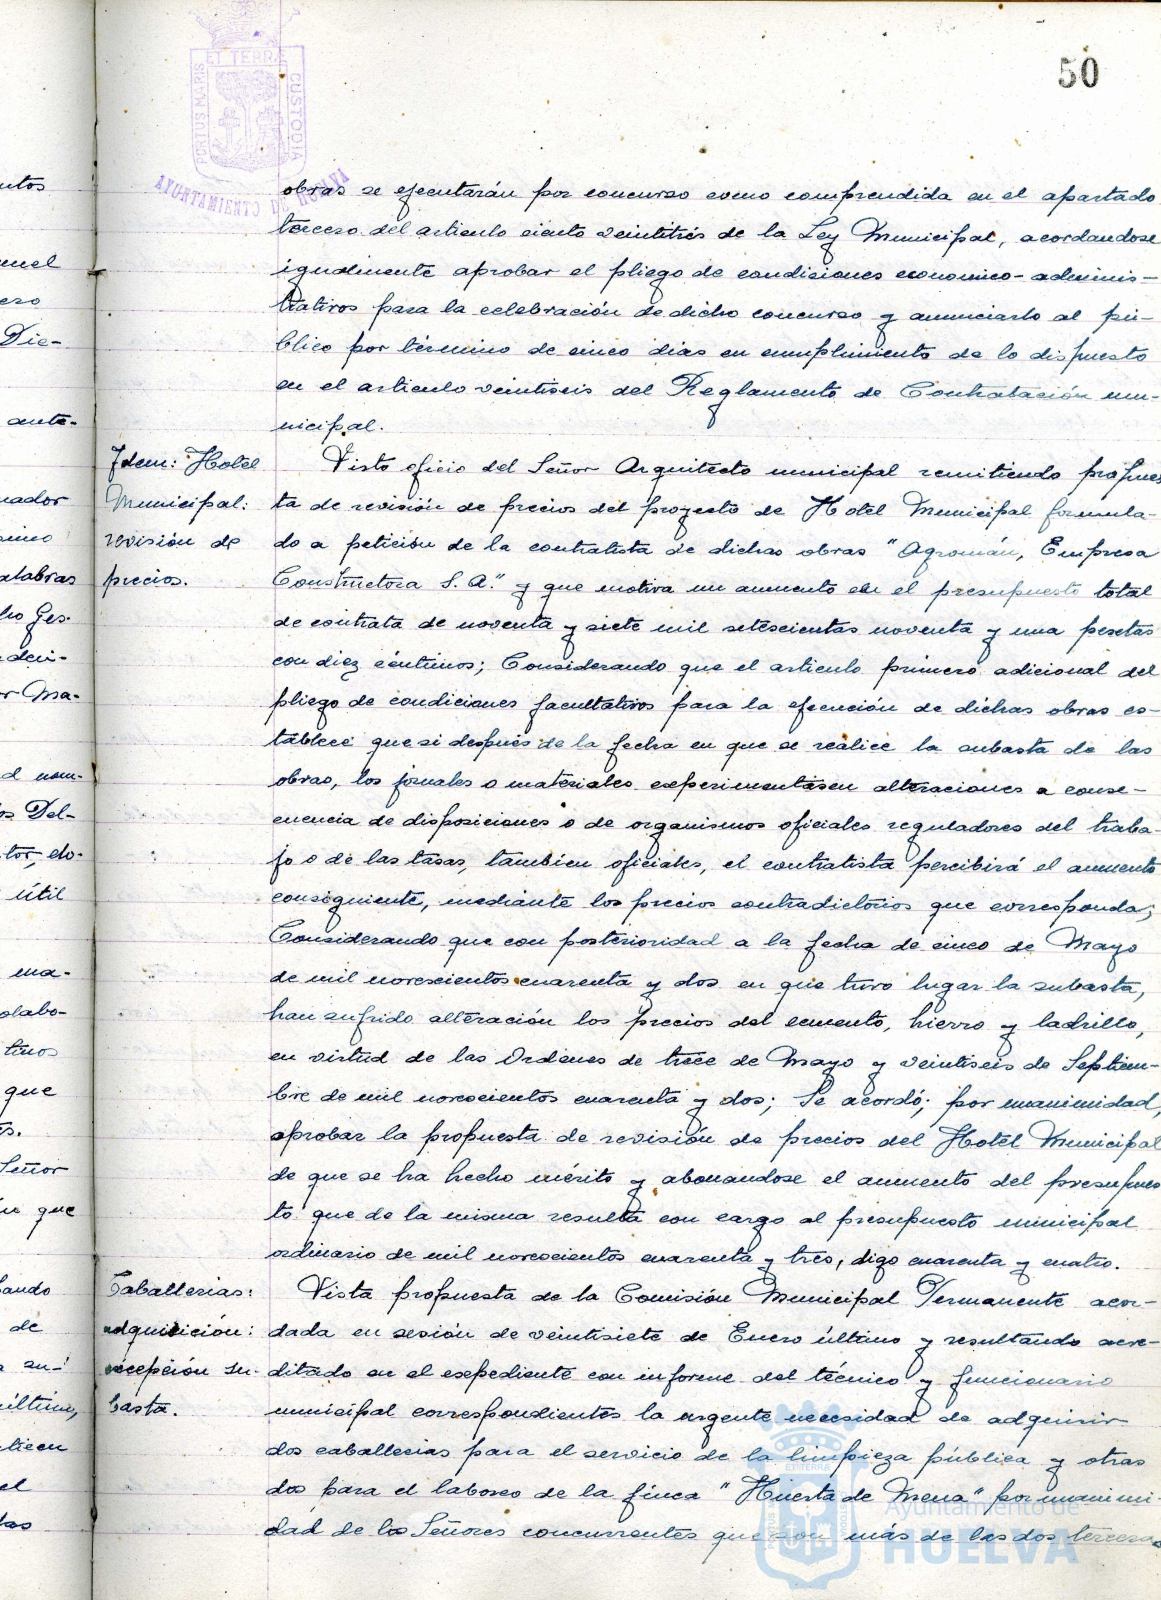 50
PORTUS MARIS ET TERRÆ CUSTODIA
AYUNTAMIENTO DE HUELVA
obras se ejecutarán por concurso como comprendida en el apartado
tercero del articulo ciento veintitrés de la Ley Municipal, acordandose
igualmente aprobar el pliego de condiciones economico-adminis-
trativos para la celebración de dicho concurso y anunciarlo al pú-
blico por término de cinco dias en cumplimiento de lo dispuesto
en el articulo veintiseis del Reglamento de Contratación mu-
nicipal.
Idem: Hotel
Municipal:
revisión de
precios.
Visto oficio del Señor Arquitecto municipal remitiendo propues
ta de revisión de precios del proyecto de Hotel Municipal formula-
do a petición de la contratista de dichas obras "Agromán, Empresa
Constructora S.A." y que motiva un aumento en el presupuesto total
de contrata de noventa y siete mil setescientas noventa y una pesetas
con diez céntimos; Considerando que el articulo primero adicional del
pliego de condiciones facultativos para la ejecución de dichas obras es-
tablece que si después de la fecha en que se realice la subasta de las
obras, los jornales o materiales experimentasen alteraciones a conse-
cuencia de disposiciones o de organismos oficiales reguladores del traba-
jo o de las tasas, tambien oficiales, el contratista percibirá el aumento
consiguiente, mediante los precios contradictorios que corresponda;
Considerando que con posterioridad a la fecha de cinco de Mayo
de mil novescientos cuarenta y dos en que tuvo lugar la subasta,
han sufrido alteración los precios del cemento, hierro y ladrillo,
en virtud de las Ordenes de trece de Mayo y veintiseis de Septiem-
bre de mil novecientos cuarenta y dos; Se acordó, por unanimidad,
aprobar la propuesta de revisión de precios del Hotel Municipal
de que se ha hecho mérito y abonandose el aumento del presupues
to que de la misma resulta con cargo al presupuesto municipal
ordinario de mil novecientos cuarenta y tres, digo cuarenta y cuatro.
Caballerias:
adquisición:
excepción su-
basta.
Vista propuesta de la Comisión Municipal Permanente acor-
dada en sesión de veintisiete de Enero último y resultando acre-
ditado en el expediente con informe del técnico y funcionario
municipal correspondientes la urgente necesidad de adquirir
dos caballerias para el servicio de la limpieza pública y otras
dos para el laboreo de la finca "Huerta de Mena" por unanimi-
dad de los Señores concurrentes que son más de las dos terceras
Ayuntamiento de
HUELVA